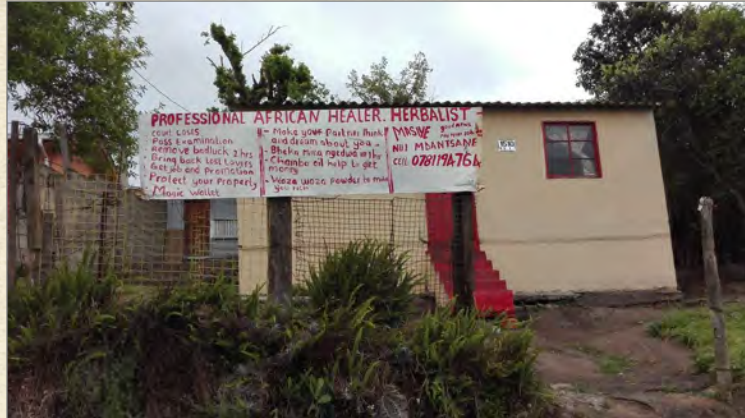 PROFESSIONAL AFRICAN HEALER. HERBALIST
court cases
Pass Examination
Remove badluck 2 hrs
Bring Back Lost Lovers
Get job and Promotion
Protect your Property
Magic Wallet
- Make your Partner think
and dream about you
- Bheka mina ngedwa
- Chamba oil help to get
money
- Woza woza Powder to make
MASIYE
NU1 MDANTSANE
CELL 0781194764